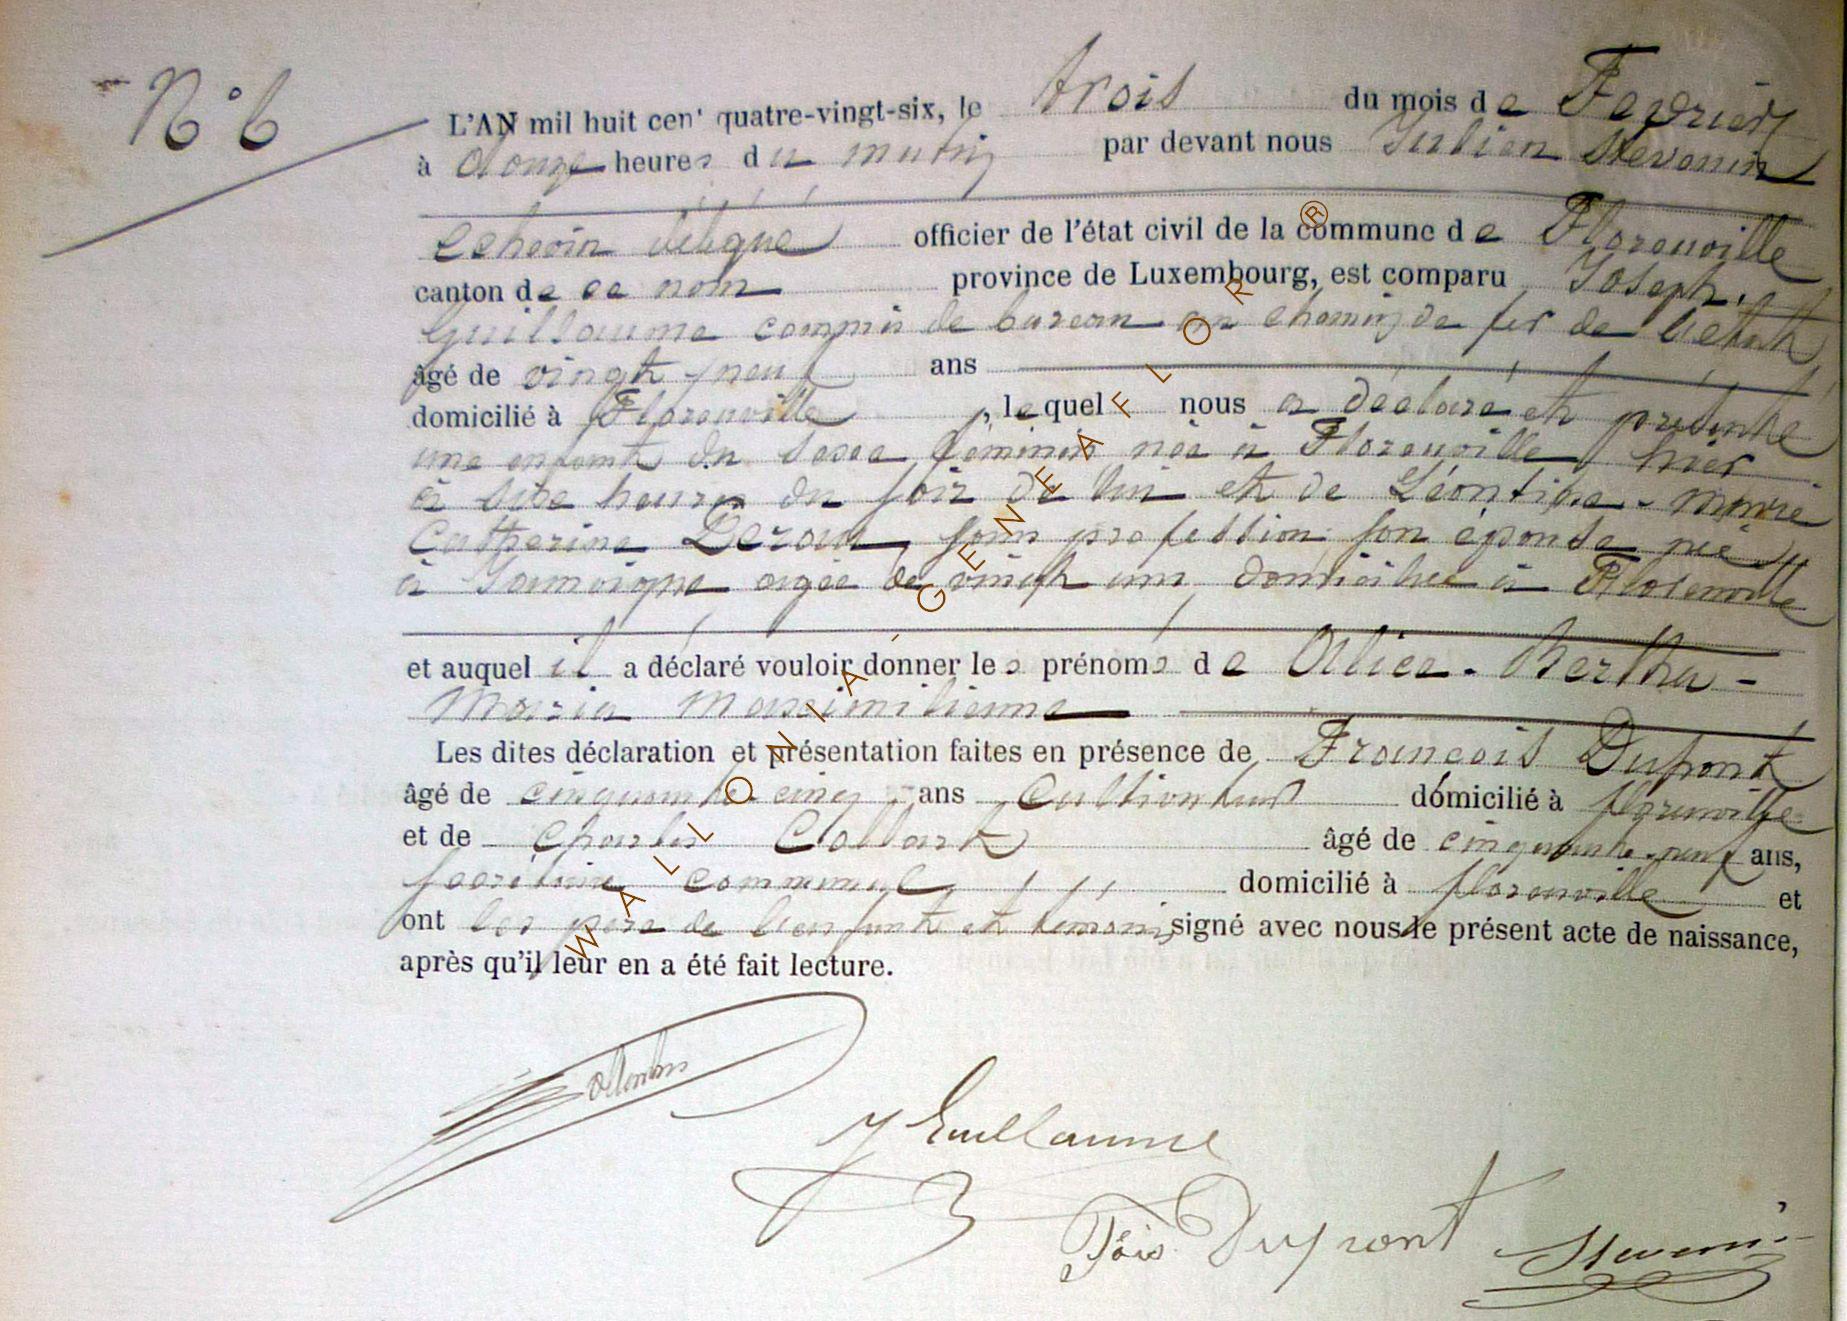 N° 6
L'AN mil huit cen' quatre-vingt-six, le trois du mois de Fevrier
à onze heures du matin par devant nous Julien Stevenin
Echevin délégué officier de l'état civil de la commune de Florenville
canton de ce nom province de Luxembourg, est comparu Joseph
Guillaume commis de bureau au chemin de fer de l'état
âgé de vingt neuf ans
domicilié à Florenville, lequel nous a déclaré et présenté
une enfant du sexe féminin née à Florenville hier
à six heures du soir de lui et de Léontine - Marie
Catherine sans profession son épouse née
à Jamoigne agée de vingt un, domiciliée à Florenville
et auquel il a déclaré vouloir donner les prénoms de Alice - Bertha -
Maria Maximilienne
Les dites déclaration et présentation faites en présence de François Dupont
âgé de cinquante cinq ans Cultivateur domicilié à florenville
et de Charles Collard âgé de cinquante neuf ans,
secrétaire communal domicilié à florenville et
ont les père de l'enfant et témoins signé avec nous le présent acte de naissance,
après qu'il leur en a été fait lecture.
J Guillaume
Fois Dupont
Stevenin
WALLONIA - GENEAFLOR ®